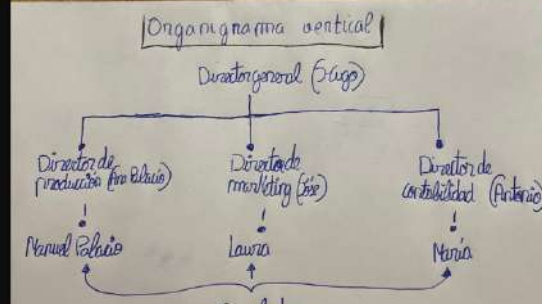 Organigrama vertical
Director general (Hugo)
Director de
producción (Ana Palacio)
Director de
marketing (José)
Director de
contabilidad (Antonio)
Manuel Palacio
Laura
María